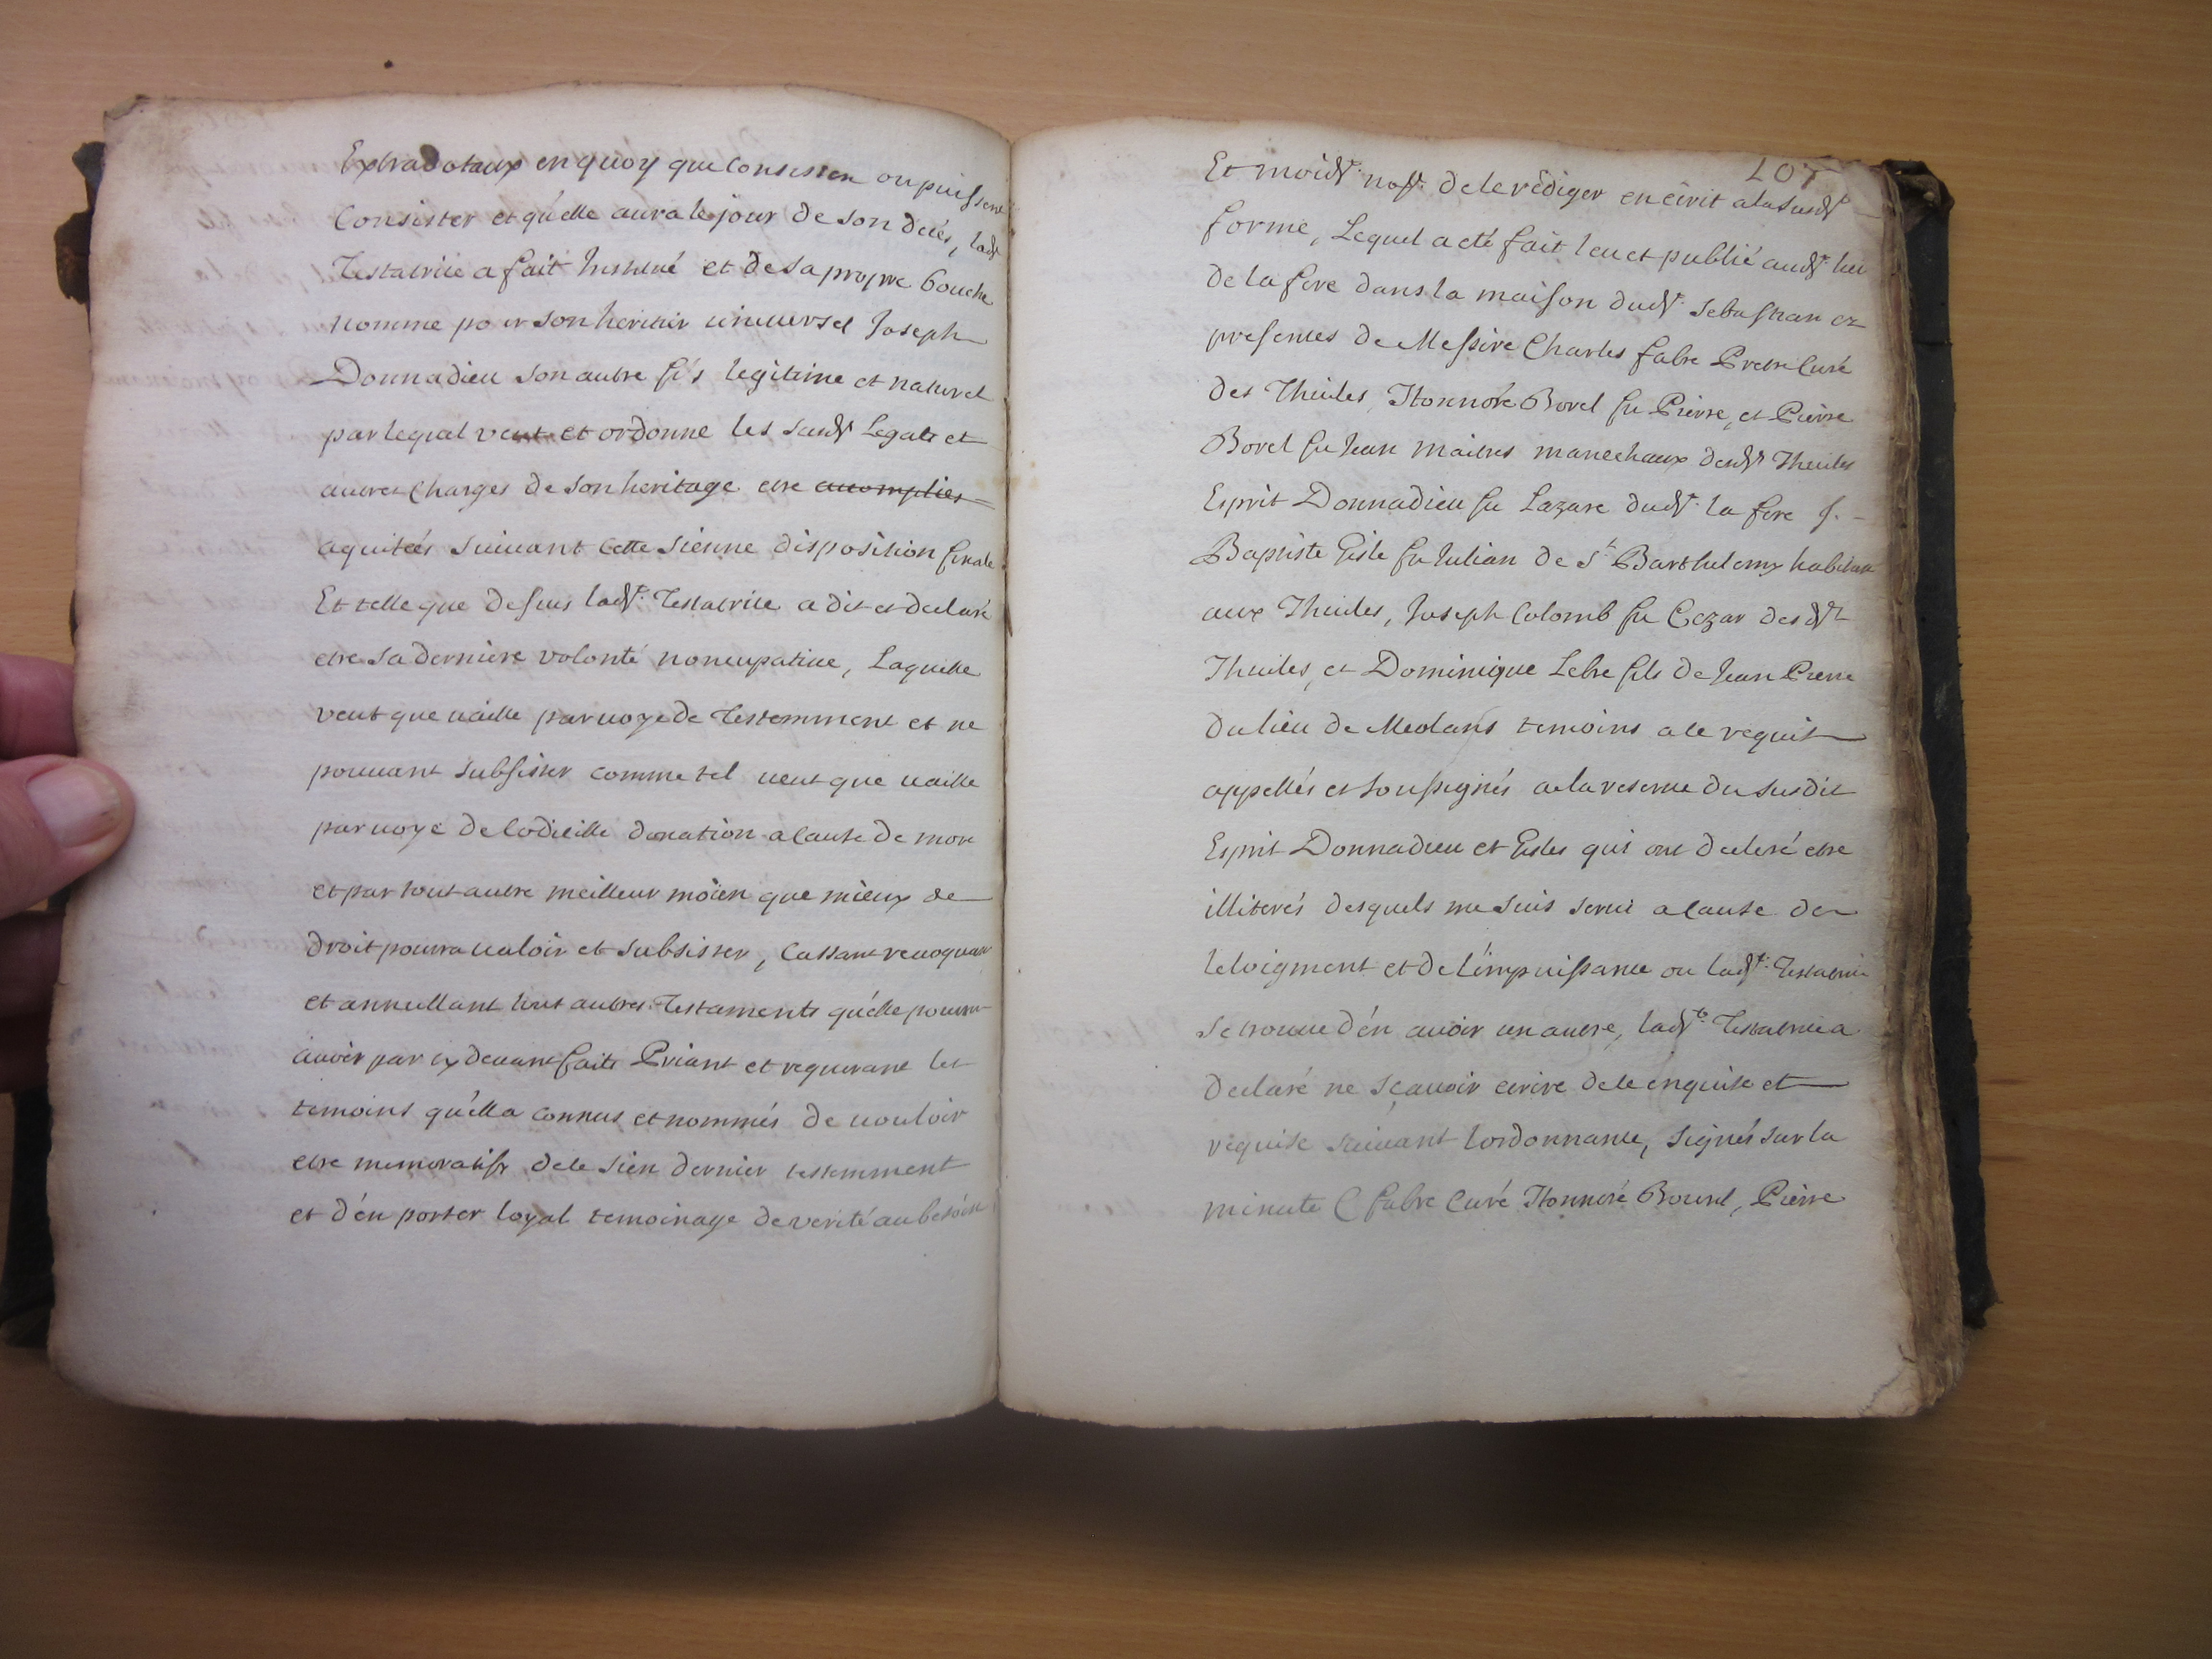 Extradotaux en quoy que consisten ou puissent
Consister et qu'elle aura le jour de son decés, lad.t
Testatrice a fait Institué et de sa propre bouche
nomme pour son heritier universel Joseph
Donnadieu son autre fi's legitime et naturel
par lequal veut et ordonne les susd.t Legats et
autres Charges de son heritage etre accomplies
aquitées suivant cette sienne disposition finale
Et telle que desus lad.t Testatrice a dit et declaré
etre sa derniere volonté noncupative, Laquelle
veut que vaille par voye de testemment et ne
pouvant subsister comme tel veut que vaille
par voye de codicille donation a cause de mort
et par tout autre meilleur moïen que mieux de
droit pourra valoir et subsister, Cassant revoquant
et annullant tous autres Testaments qu'elle pourroit
avoir par cy devant faits Priant et requerant les
temoins qu'ella connus et nommés de vouloir
etre memoratifs de le sien dernier testemment
et d'en porter loyal temoinage de verité au besoin
107
Et moid.t not.e de le rédiger en ecrit a la susd.t
forme, Lequel a eté fait leu et publié aud.t lieu
de la frere dans la maison dud.t Sebastian ez
presences de Messire Charles fabre Pretre Curé
des Thuiles, Honnoré Borel fu Pierre, et Pierre
Borel fu Jean maitres marechaux desd.ts Thuiles
Esprit Donnadieu fu Lazare dud.t la frere J.
Baptiste Gisle fu Julian de S.t Barthelemy habitant
aux Thuiles, Joseph Colomb fu Cezar des d.ts
Thuiles, et Dominique Lebre fils de Jean Pierre
du lieu de Meolans temoins a le requit
appellés et soussignés a la reserve du susdit
Esprit Donnadieu et Gisles qui ont declaré etre
illiterés desquels me suis servi a cause de
leloigment et de l'impuissance ou lad.t Testatrice
se trouve d'en avoir un autre, lad.te Testatrice a
declaré ne sçavoir ecrire de le enquise et
requise suivant lordonnance, signés sur la
minute C fabre Curé Honnoré Bourel, Pierre